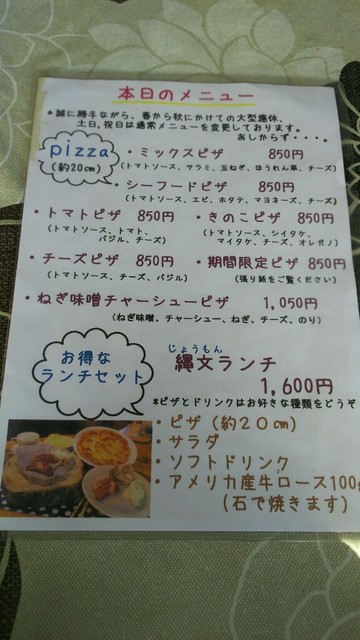 本日のメニュー
*誠に勝手ながら、春から秋にかけての大型連休、
土日,祝日は通常メニューを変更しております。
あしからず・・・。
pizza
(約20㎝)
・ミックスピザ 850円
(トマトソース、サラミ、玉ねぎ、ほうれん草、チーズ)
・シーフードピザ 850円
(トマトソース、エビ、ホタテ、マヨネーズ、チーズ)
・トマトピザ 850円 ・きのこピザ 850円
(トマトソース、トマト、 (トマトソース、シイタケ、
バジル、チーズ) マイタケ、チーズ、オレガノ)
・チーズピザ 850円 ・期間限定ピザ 850円
(トマトソース、チーズ、バジル) (張り紙をご覧ください)
・ねぎ味噌チャーシューピザ 1,050円
(ねぎ味噌、チャーシュー、ねぎ、チーズ、のり)
お得な
ランチセット
じょうもん
縄文ランチ
1,600円
*ピザとドリンクはお好きな種類をどうぞ
・ピザ(約20㎝)
・サラダ
・ソフトドリンク
・アメリカ産牛ロース100g
(石で焼きます)